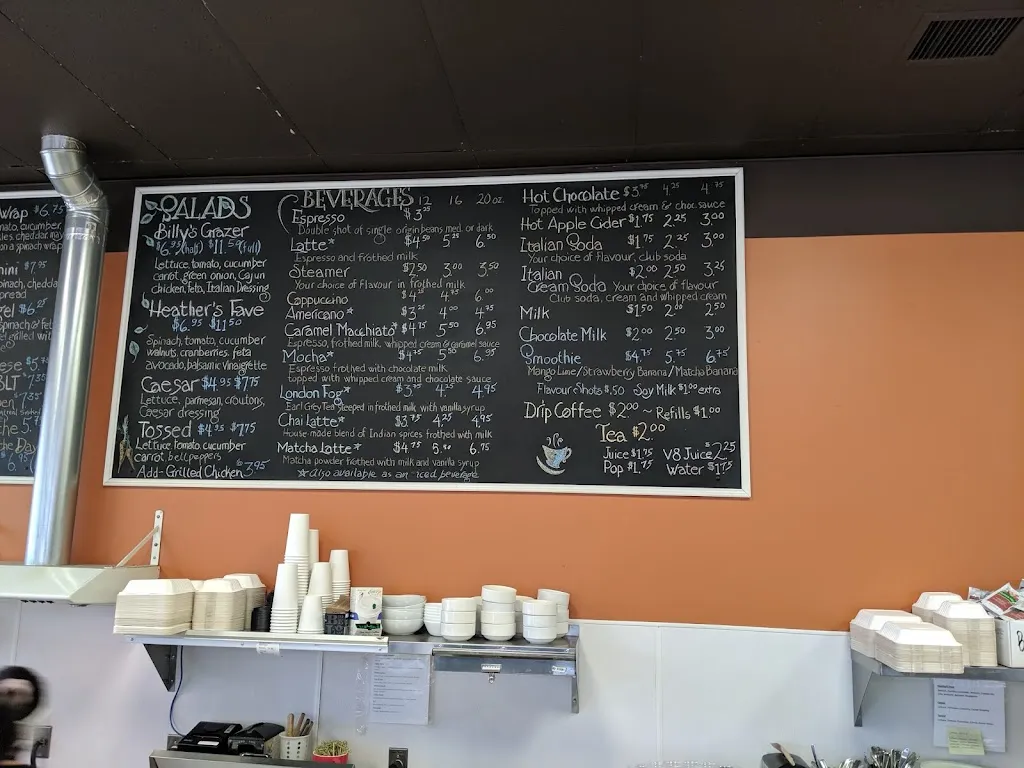 Wrap $6.75
SALADS
Billy's Grazer
$6.95 (half) $11.50 (full)
Lettuce, tomato, cucumber
carrot, green onion, Cajun
chicken, feta, Italian Dressing
Heather's Fave
$6.95 $11.50
Spinach, tomato, cucumber
walnuts, cranberries, feta
avocado, balsamic vinaigrette
Caesar $4.95 $7.75
Lettuce, parmesan, croutons,
Caesar dressing
Tossed $4.95 $7.75
Lettuce tomato cucumber
carrot, bell peppers
Add-Grilled Chicken $3.95
BEVERAGES 12 16 20 oz.
Espresso $3.25
Double shot of single origin beans med. or dark
Latte* $4.50 5.25 6.50
Espresso and frothed milk
Steamer $2.50 3.00 3.50
Your choice of flavour in frothed milk
Cappuccino $4.25 4.75 6.00
Americano* $3.25 4.00 4.75
Caramel Macchiato* $4.75 5.50 6.95
Espresso, frothed milk, whipped cream & caramel sauce
Mocha* $4.75 5.50 6.95
Espresso frothed with chocolate milk
topped with whipped cream and chocolate sauce
London Fog* $3.75 4.25 4.95
Earl Grey Tea steeped in frothed milk with vanilla syrup
Chai Latte* $3.75 4.25 4.95
House made blend of Indian spices frothed with milk
Matcha Latte* $4.75 6.75
Matcha powder frothed with milk and vanilla syrup
*also available as an iced beverage
Hot Chocolate $3.75 4.25 4.75
Topped with whipped cream & choc. sauce
Hot Apple Cider $1.75 2.25 3.00
Italian Soda $1.75 2.25 3.00
Your choice of flavour, club soda
Italian $2.00 2.50 3.25
Cream Soda Your choice of flavour
Club soda, cream and whipped cream
Milk $1.50 2.00 2.50
Chocolate Milk $2.00 2.50 3.00
Smoothie $4.75 5.75 6.75
Mango Lime/Strawberry Banana/Matcha Banana
Flavour Shots $.50 Soy Milk $1.00 extra
Drip Coffee $2.00 ~ Refills $1.00
Tea $2.00
Juice $1.75 V8 Juice $2.25
Pop $1.75 Water $1.75